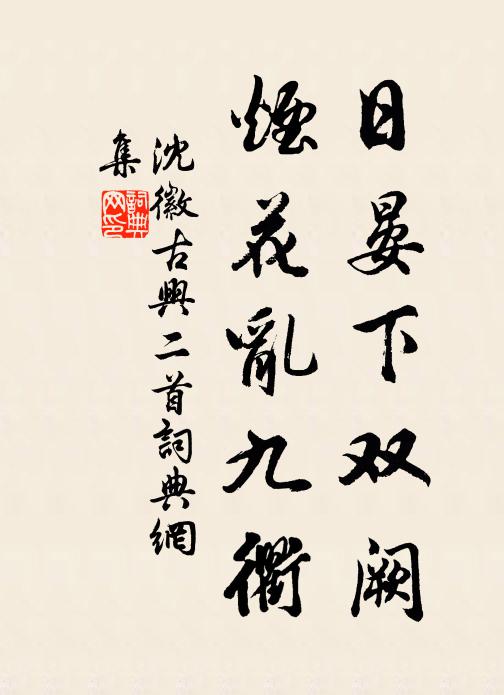 日晏下双阙
煙花亂九衢
沈徽古興二首詞典網
集
詞典
网印